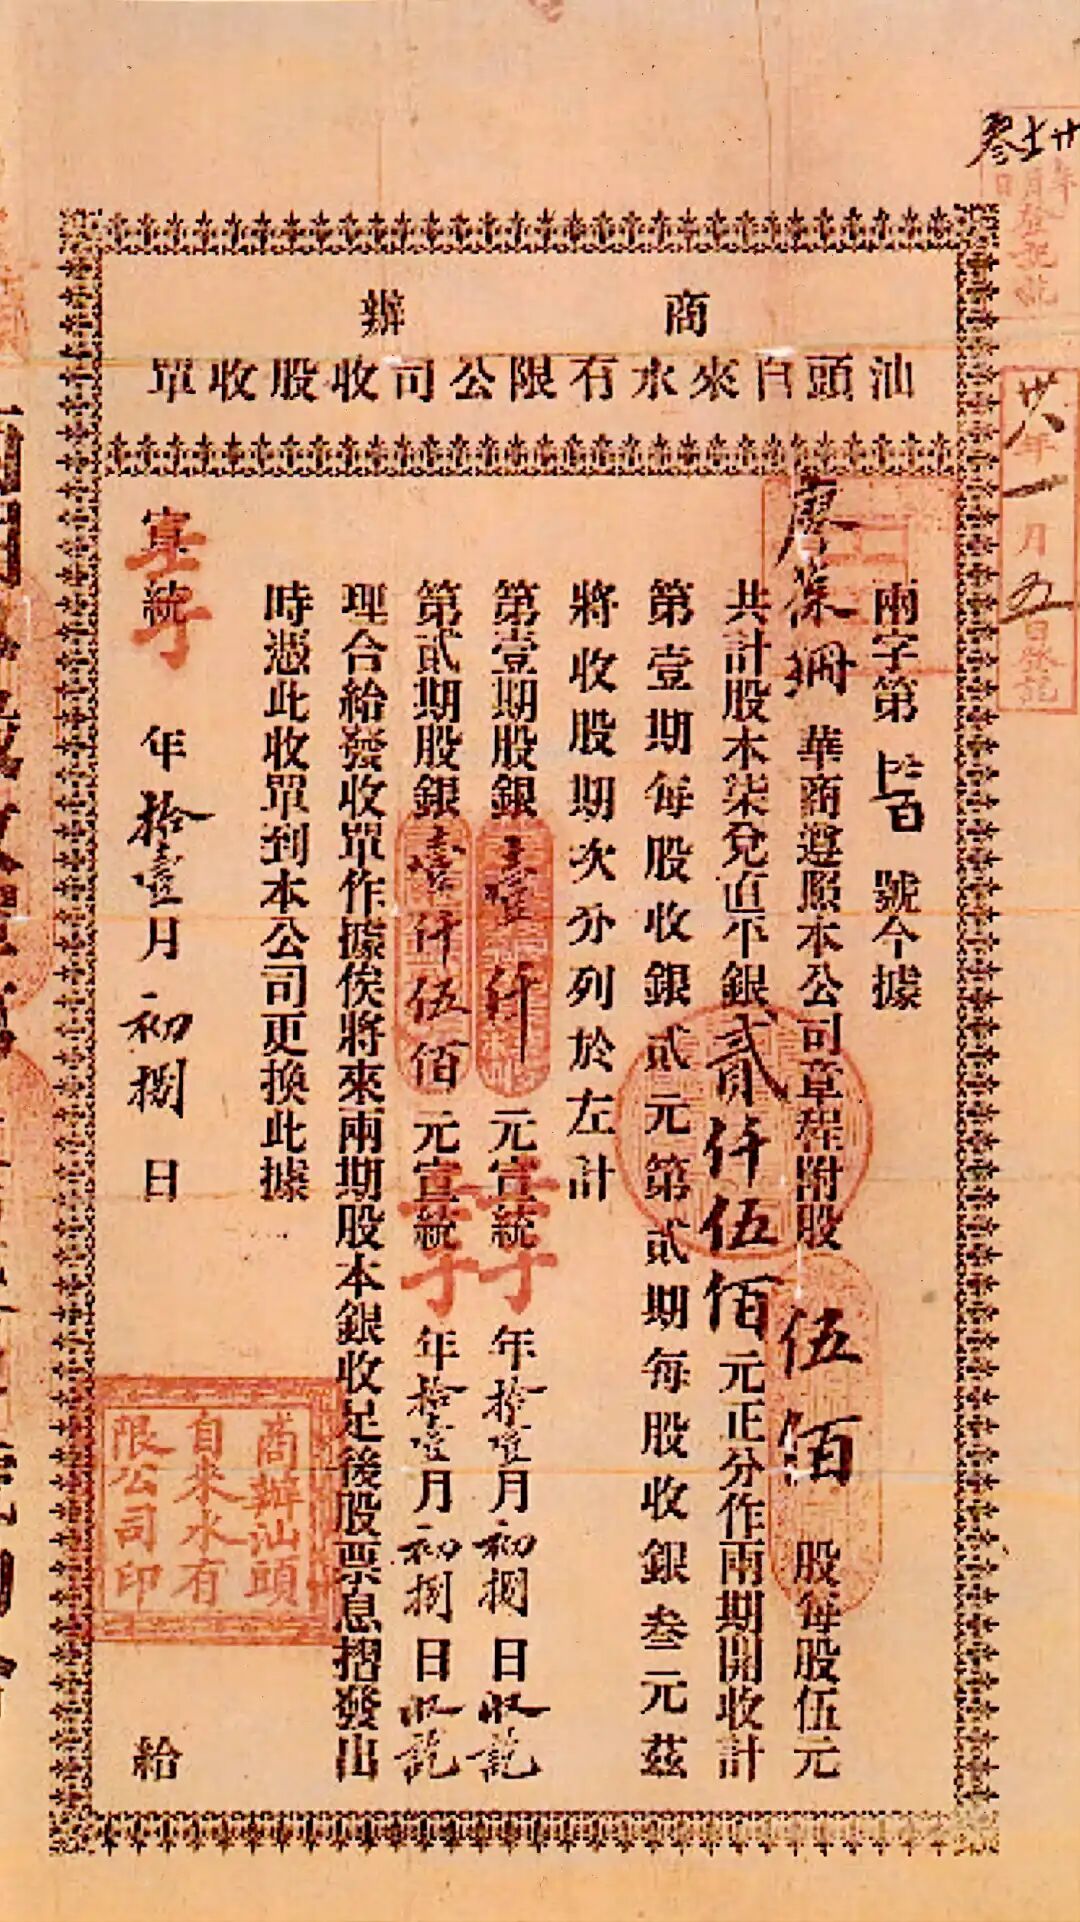 商辦
汕頭自來水有限公司收股收單
兩字第 號今據
廖葆珊 華商遵照本公司章程附股 伍佰 股每股伍元
共計股本柒兌直平銀貳仟伍佰元正分作兩期開收計
第壹期每股收銀貳元第貳期每股收銀叁元茲
將收股期次分列於左計
第壹期股銀壹仟元宣統 年拾壹月初捌日收訖
第貳期股銀壹仟伍佰元宣統 年拾壹月初捌日收訖
理合給發收單作據俟將來兩期股本銀收足後股票息摺發出
時憑此收單到本公司更換此據
宣統 年拾壹月初捌日 給
商辦汕頭
自來水有
限公司印
卅八年一月五日登記